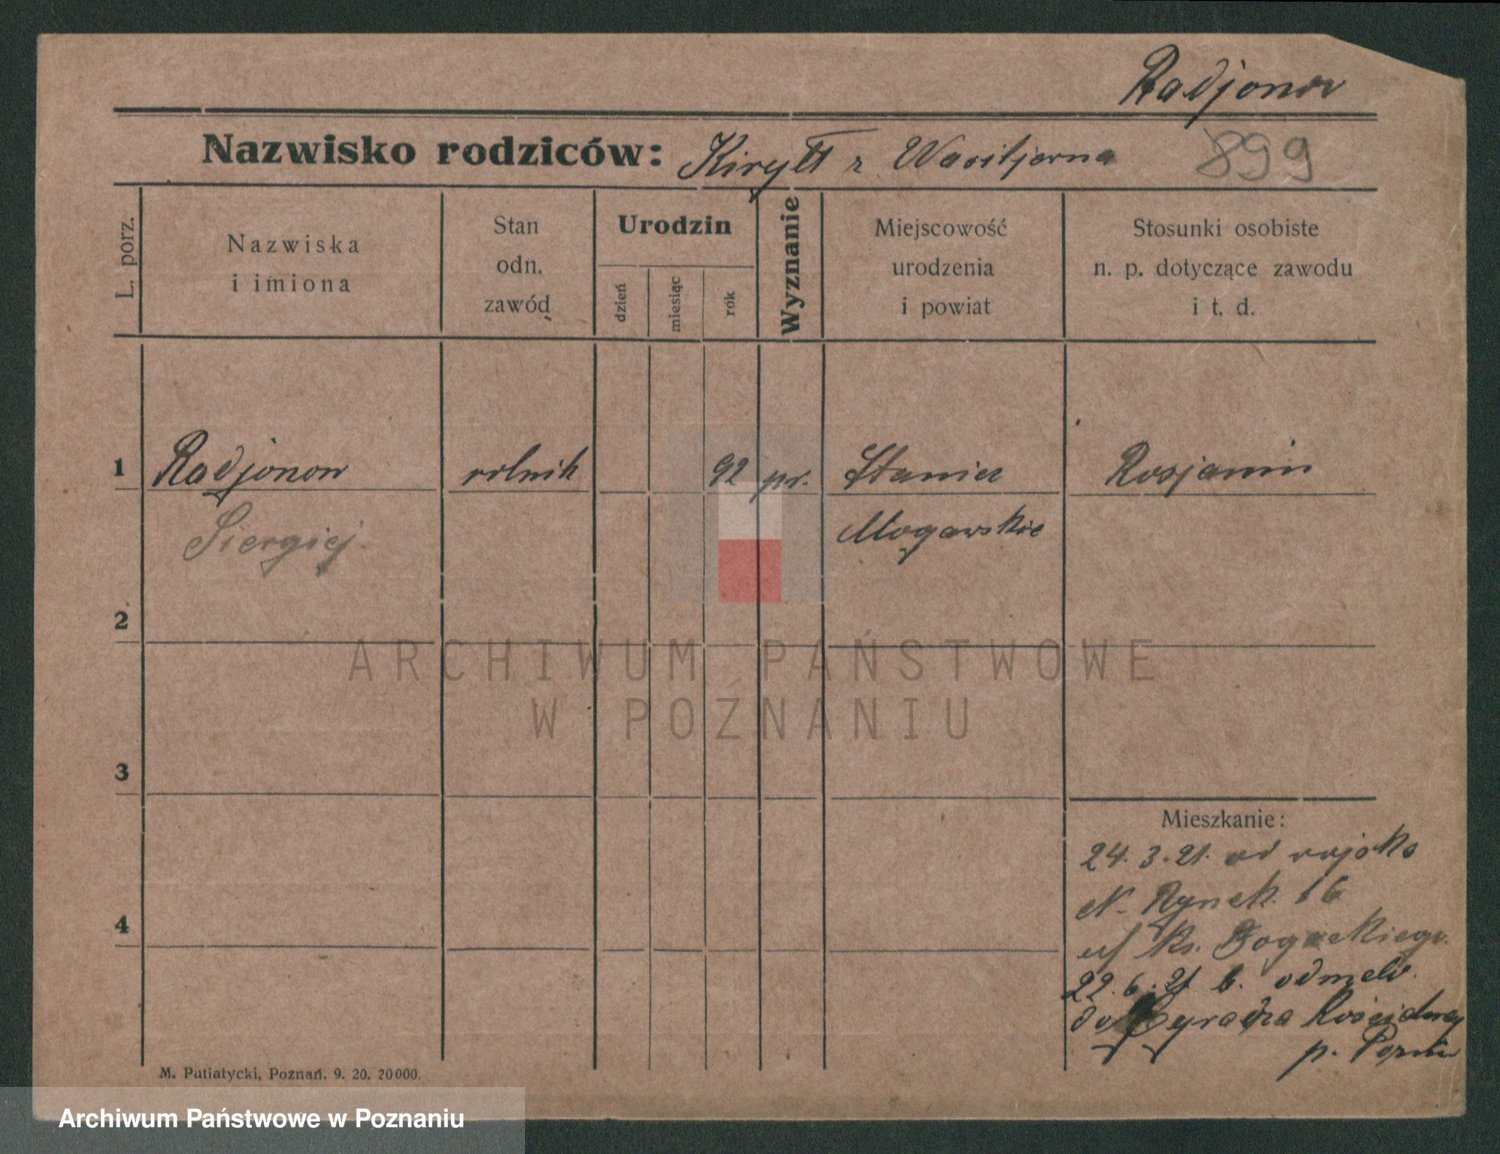 Radjonow
Nazwisko rodziców: Kiryłł z Wasiljewna 899
L. porz.
Nazwiska
i imiona
Stan
odn.
zawód
Urodzin
dzień
miesiąc
rok
Wyznanie
Miejscowość
urodzenia
i powiat
Stosunki osobiste
n. p. dotyczące zawodu
i t. d.
1 Radjonow rolnik 92 pr. Stanica Rosjanin
Siergiej
2
3
4
ARCHIWUM PAŃSTWOWE
W POZNANIU
Mieszkanie:
24. 3. 21. od
N. Rynek. 16
ks.
22. 6. 21 odmeld.
do
p.
M. Putiatycki, Poznań. 9. 20. 20000.
Archiwum Państwowe w Poznaniu